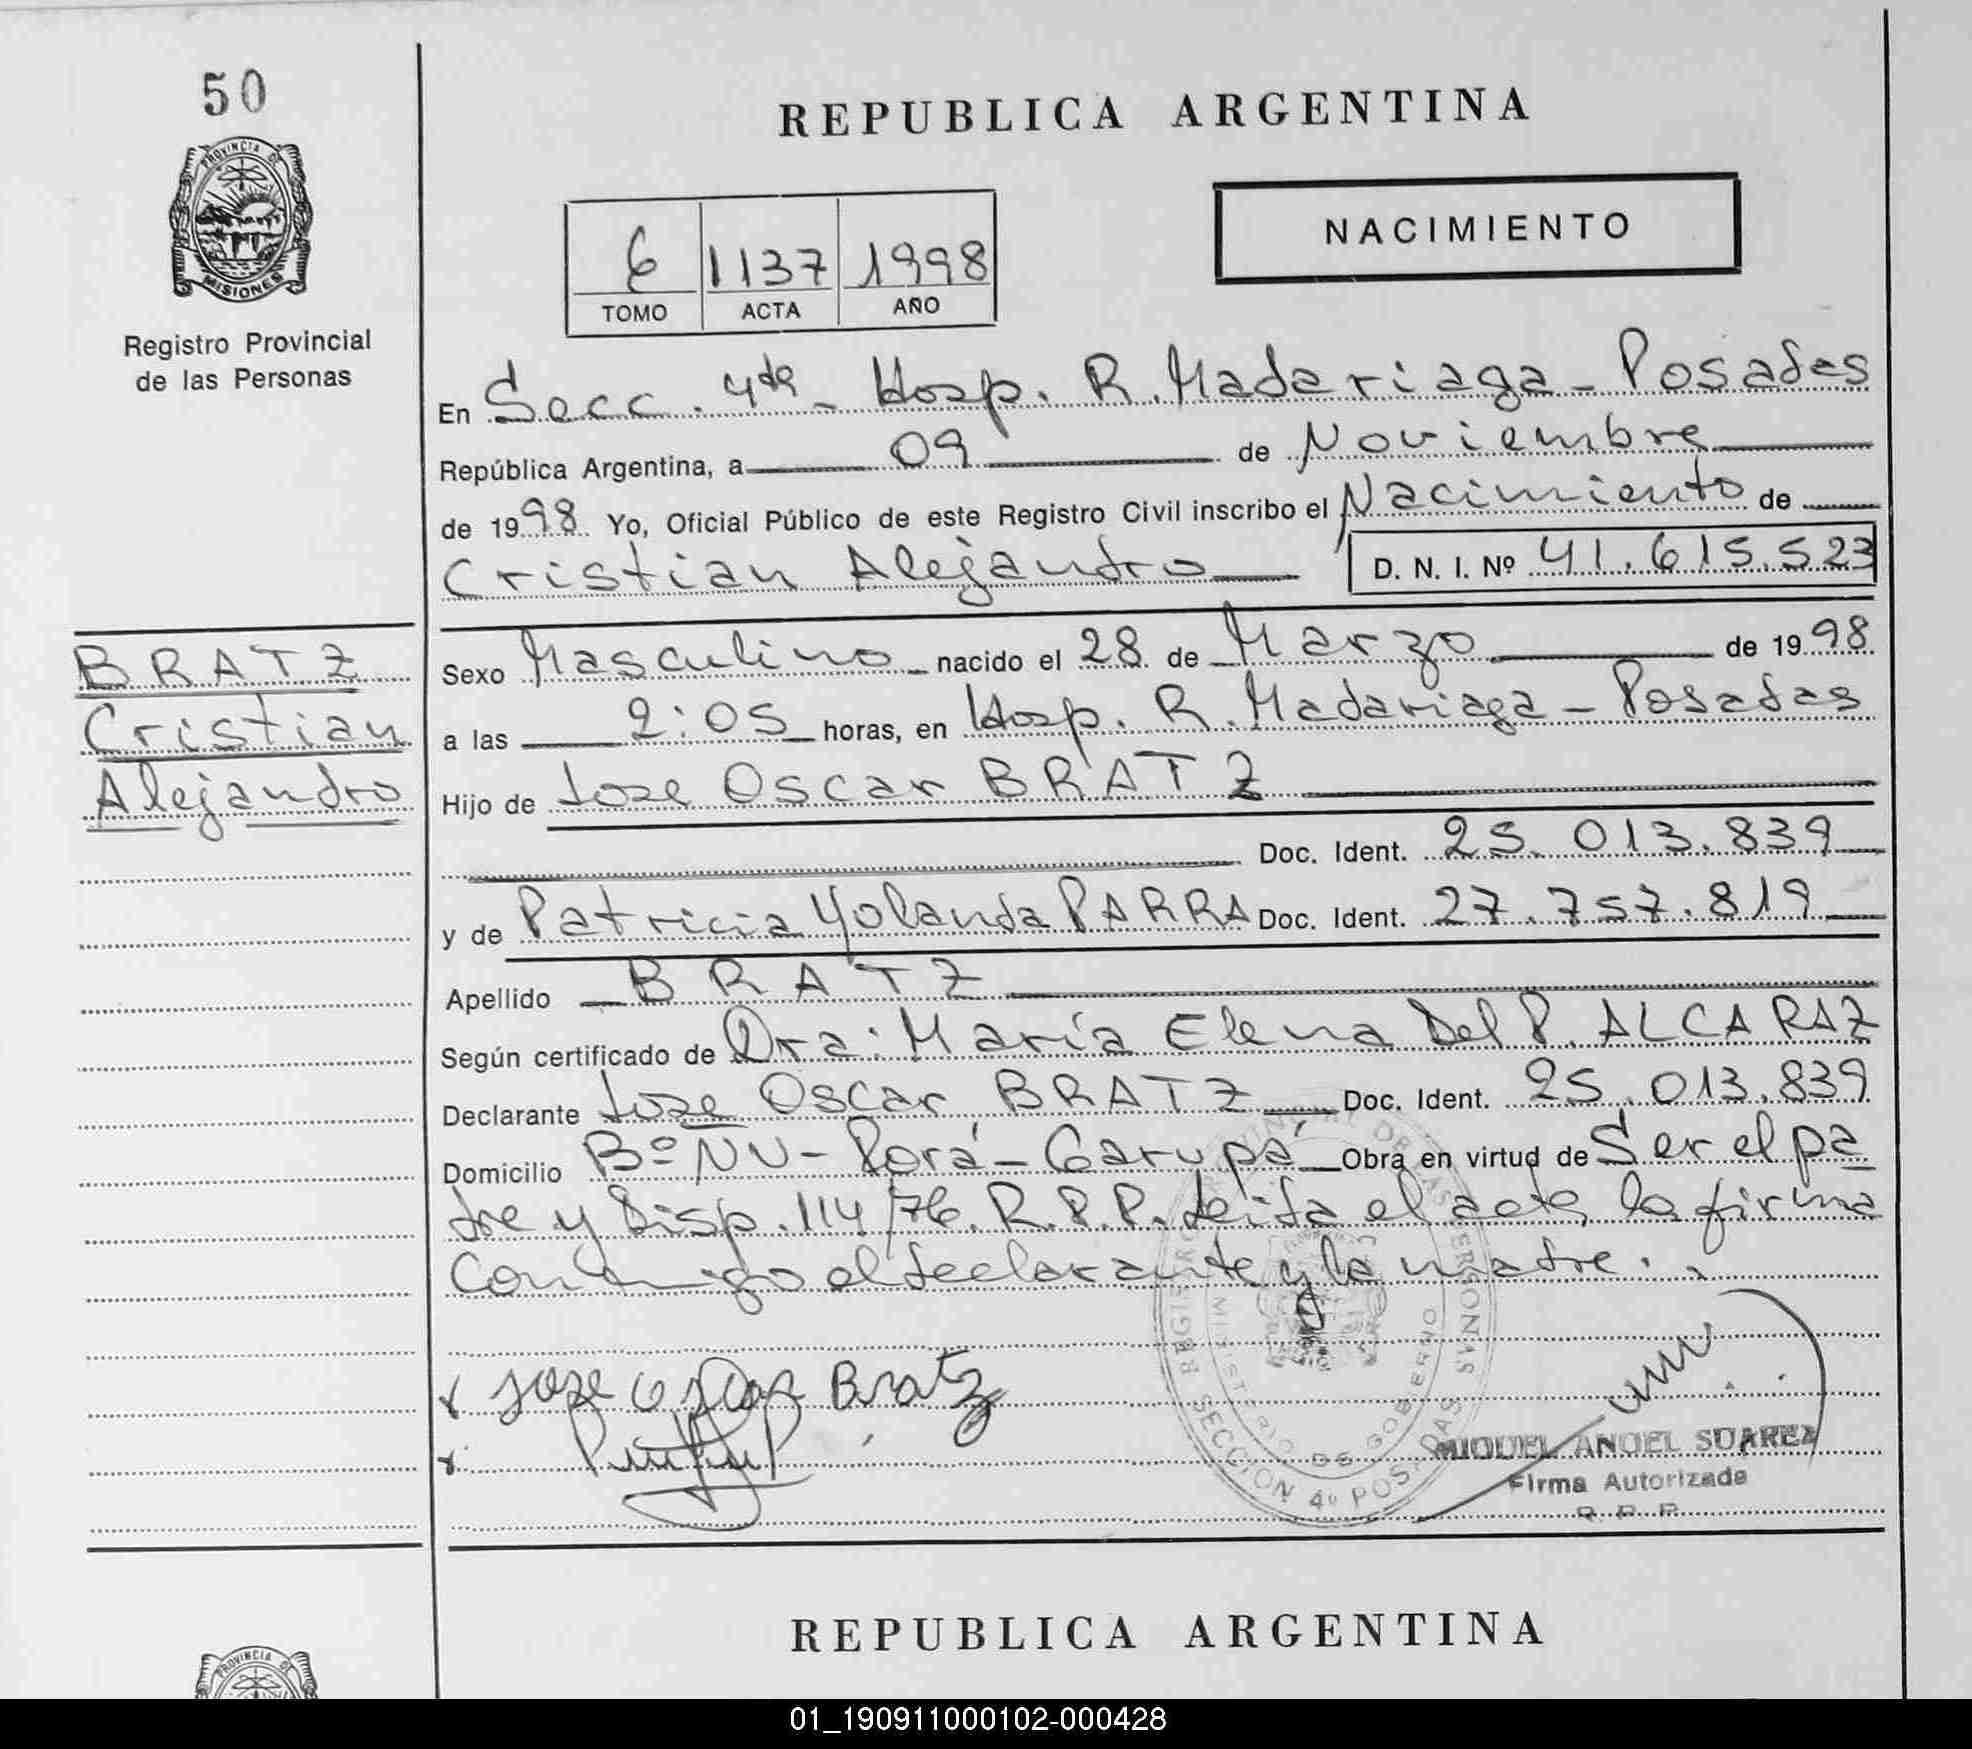 50
PROVINCIA DE
MISIONES
Registro Provincial
de las Personas
REPUBLICA ARGENTINA
6 1137 1998
TOMO ACTA AÑO
NACIMIENTO
En Secc. 4ta - Hosp. R. Madariaga - Posadas
República Argentina, a 09 de Noviembre
de 1998. Yo, Oficial Público de este Registro Civil inscribo el Nacimiento de
Cristian Alejandro D. N. I. Nº 41.615.523
BRATZ
Cristian
Alejandro
Sexo Masculino nacido el 28 de Marzo de 1998
a las 2:05 horas, en Hosp. R. Madariaga - Posadas
Hijo de Jose Oscar BRATZ
Doc. Ident. 25.013.839
y de Patricia Yolanda PARRA Doc. Ident. 27.757.819
Apellido BRATZ
Según certificado de Dra: María Elena Del P. ALCARAZ
Declarante Jose Oscar BRATZ Doc. Ident. 25.013.839
Domicilio Bº ÑU - Porá - Garupá Obra en virtud de Ser el pa
dre y Disp. 114/76. R.P.P. Leída el acta, la firma
conmigo el declarante y la madre.
x Jose Oscar Bratz
x
MINISTERIO DE GOBIERNO
SECCION 4º POSADAS
MIGUEL ANGEL SUAREZ
Firma Autorizada
R. P. P.
REPUBLICA ARGENTINA
PROVINCIA DE
01_190911000102-000428